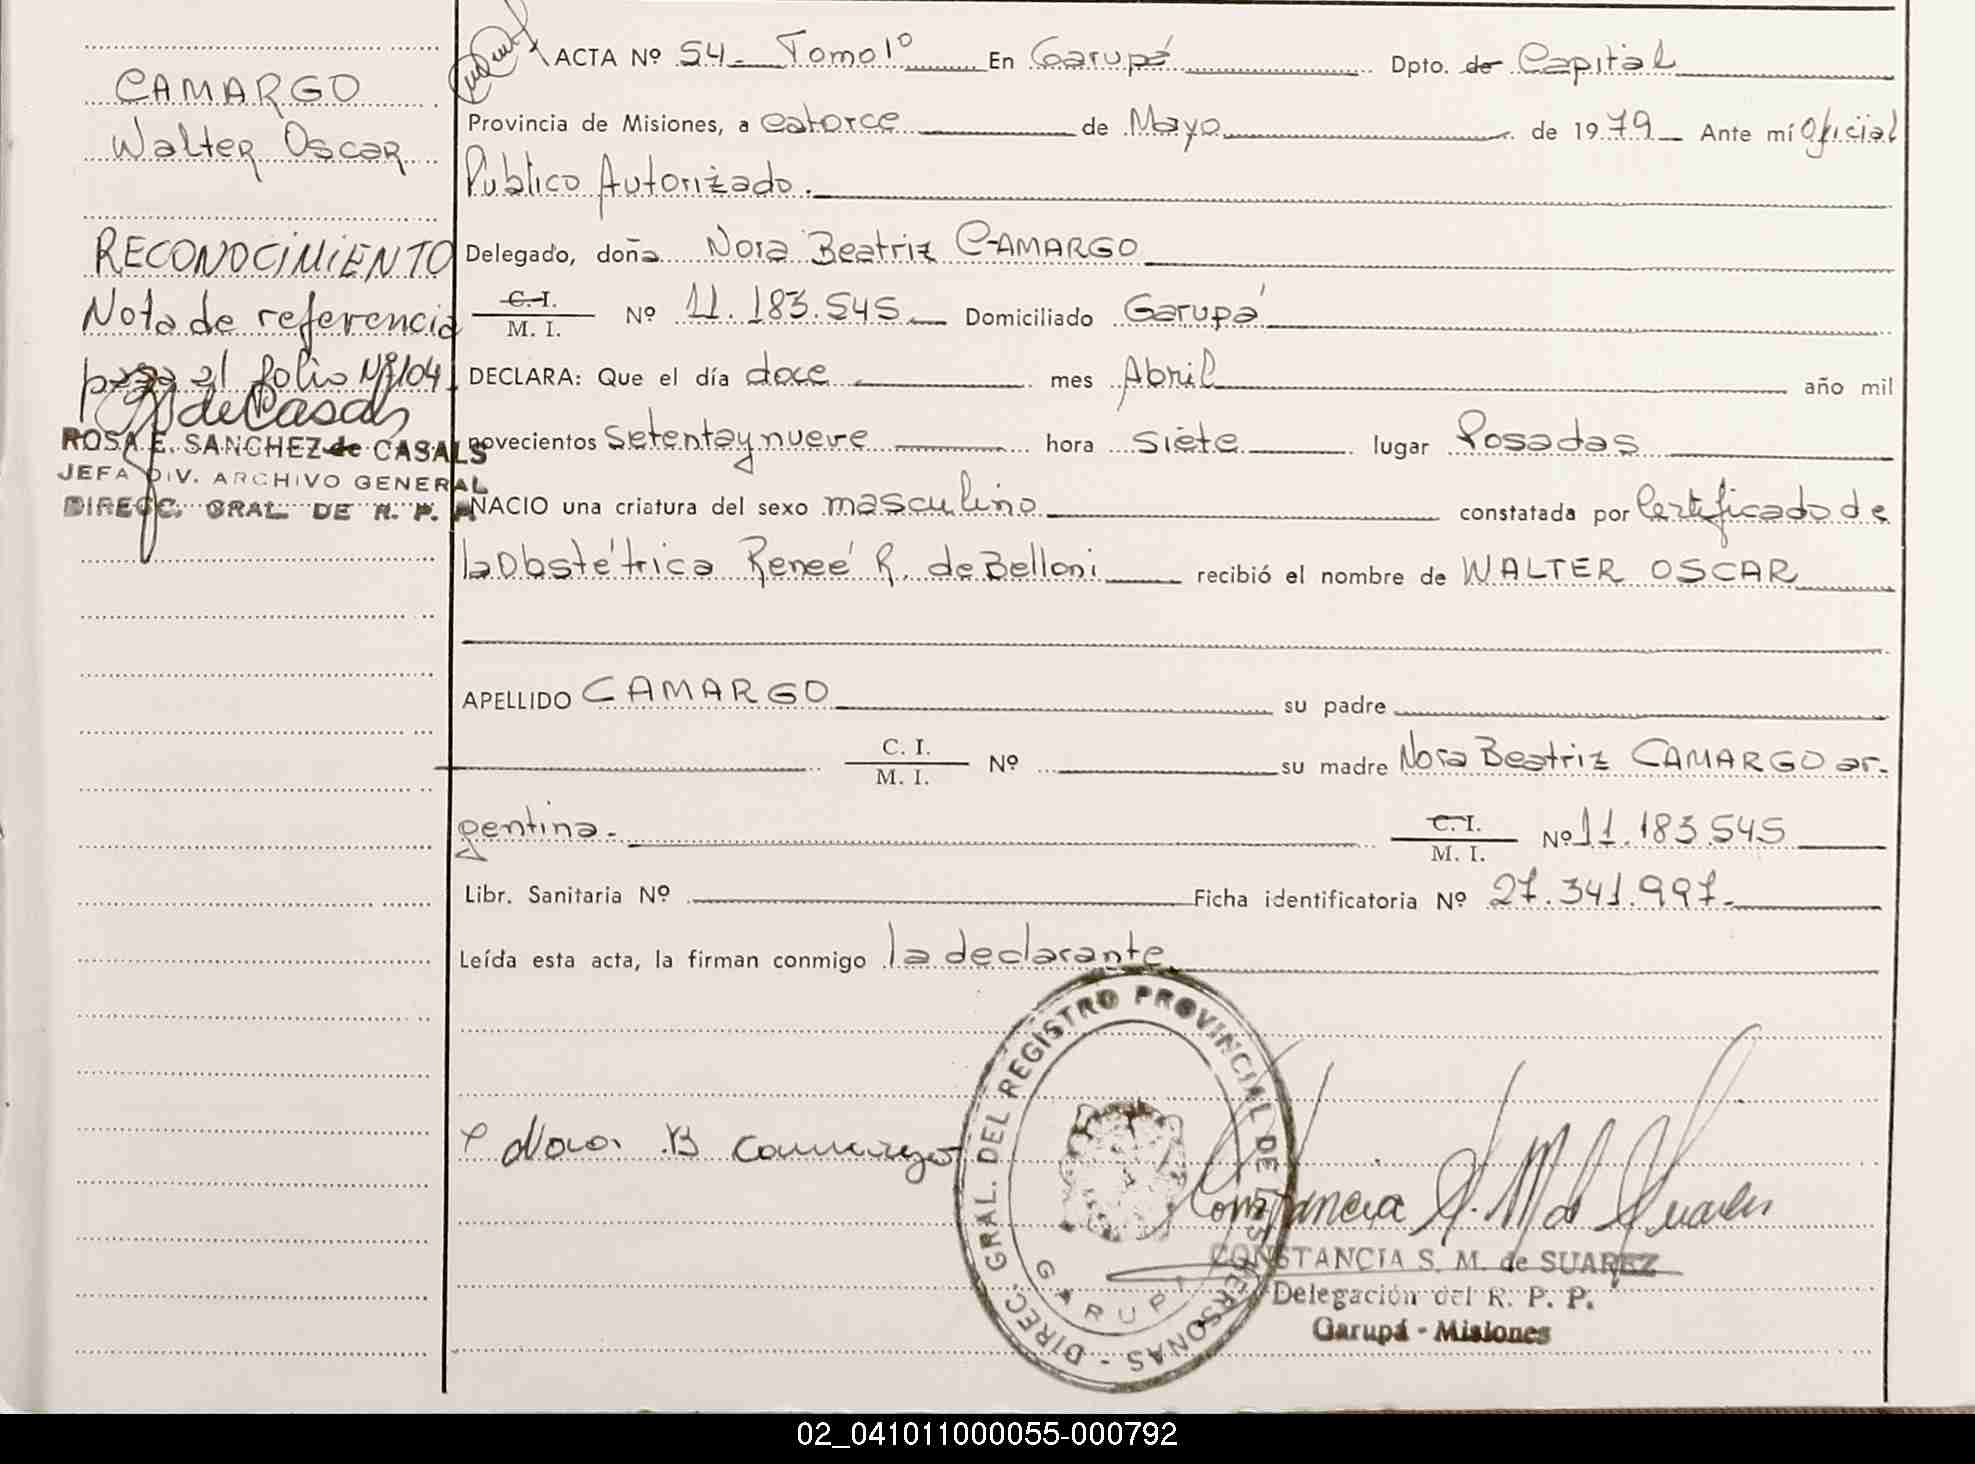 CAMARGO
Walter Oscar
RECONOCIMIENTO
Nota de referencia
pasa al folio Nº104
ROSA E. SANCHEZ de CASALS
JEFA DIV. ARCHIVO GENERAL
DIRECC. GRAL. DE R. P.
ACTA Nº 54 - Tomo 1º En Garupá Dpto. de Capital
Provincia de Misiones, a catorce de Mayo de 1979 Ante mí Oficial
Público Autorizado.
Delegado, doña Nora Beatriz CAMARGO
C. I. / M. I. Nº 11.183.545 Domiciliado Garupá
DECLARA: Que el día doce mes Abril año mil
novecientos setenta y nueve hora siete lugar Posadas
NACIO una criatura del sexo masculino constatada por Certificado de
la Obstétrica Reneé R. de Belloni recibió el nombre de WALTER OSCAR
APELLIDO CAMARGO su padre
C. I. / M. I. Nº su madre Nora Beatriz CAMARGO ar-
gentina. C. I. / M. I. Nº 11.183.545
Libr. Sanitaria Nº Ficha identificatoria Nº 27.341.997.
Leída esta acta, la firman conmigo la declarante
Nora B Camargo
DIREC. GRAL. DEL REGISTRO PROVINCIAL DE LAS PERSONAS -
GARUPA
Constancia S. M. de Suarez
CONSTANCIA S. M. de SUAREZ
Delegación del R. P. P.
Garupá - Misiones
02_041011000055-000792